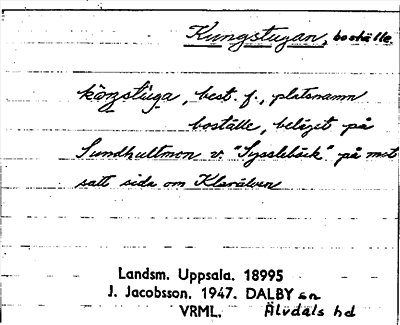 Kungstugan, boställe.
kôŋstuga, best. f., platsnamn
boställe, beläget på
Sundhultmon v. "Sysslebäck" på mot
satt sida om Klarälven
Landsm. Uppsala. 18995
J. Jacobsson. 1947. DALBY sn
VRML. Älvdals hd